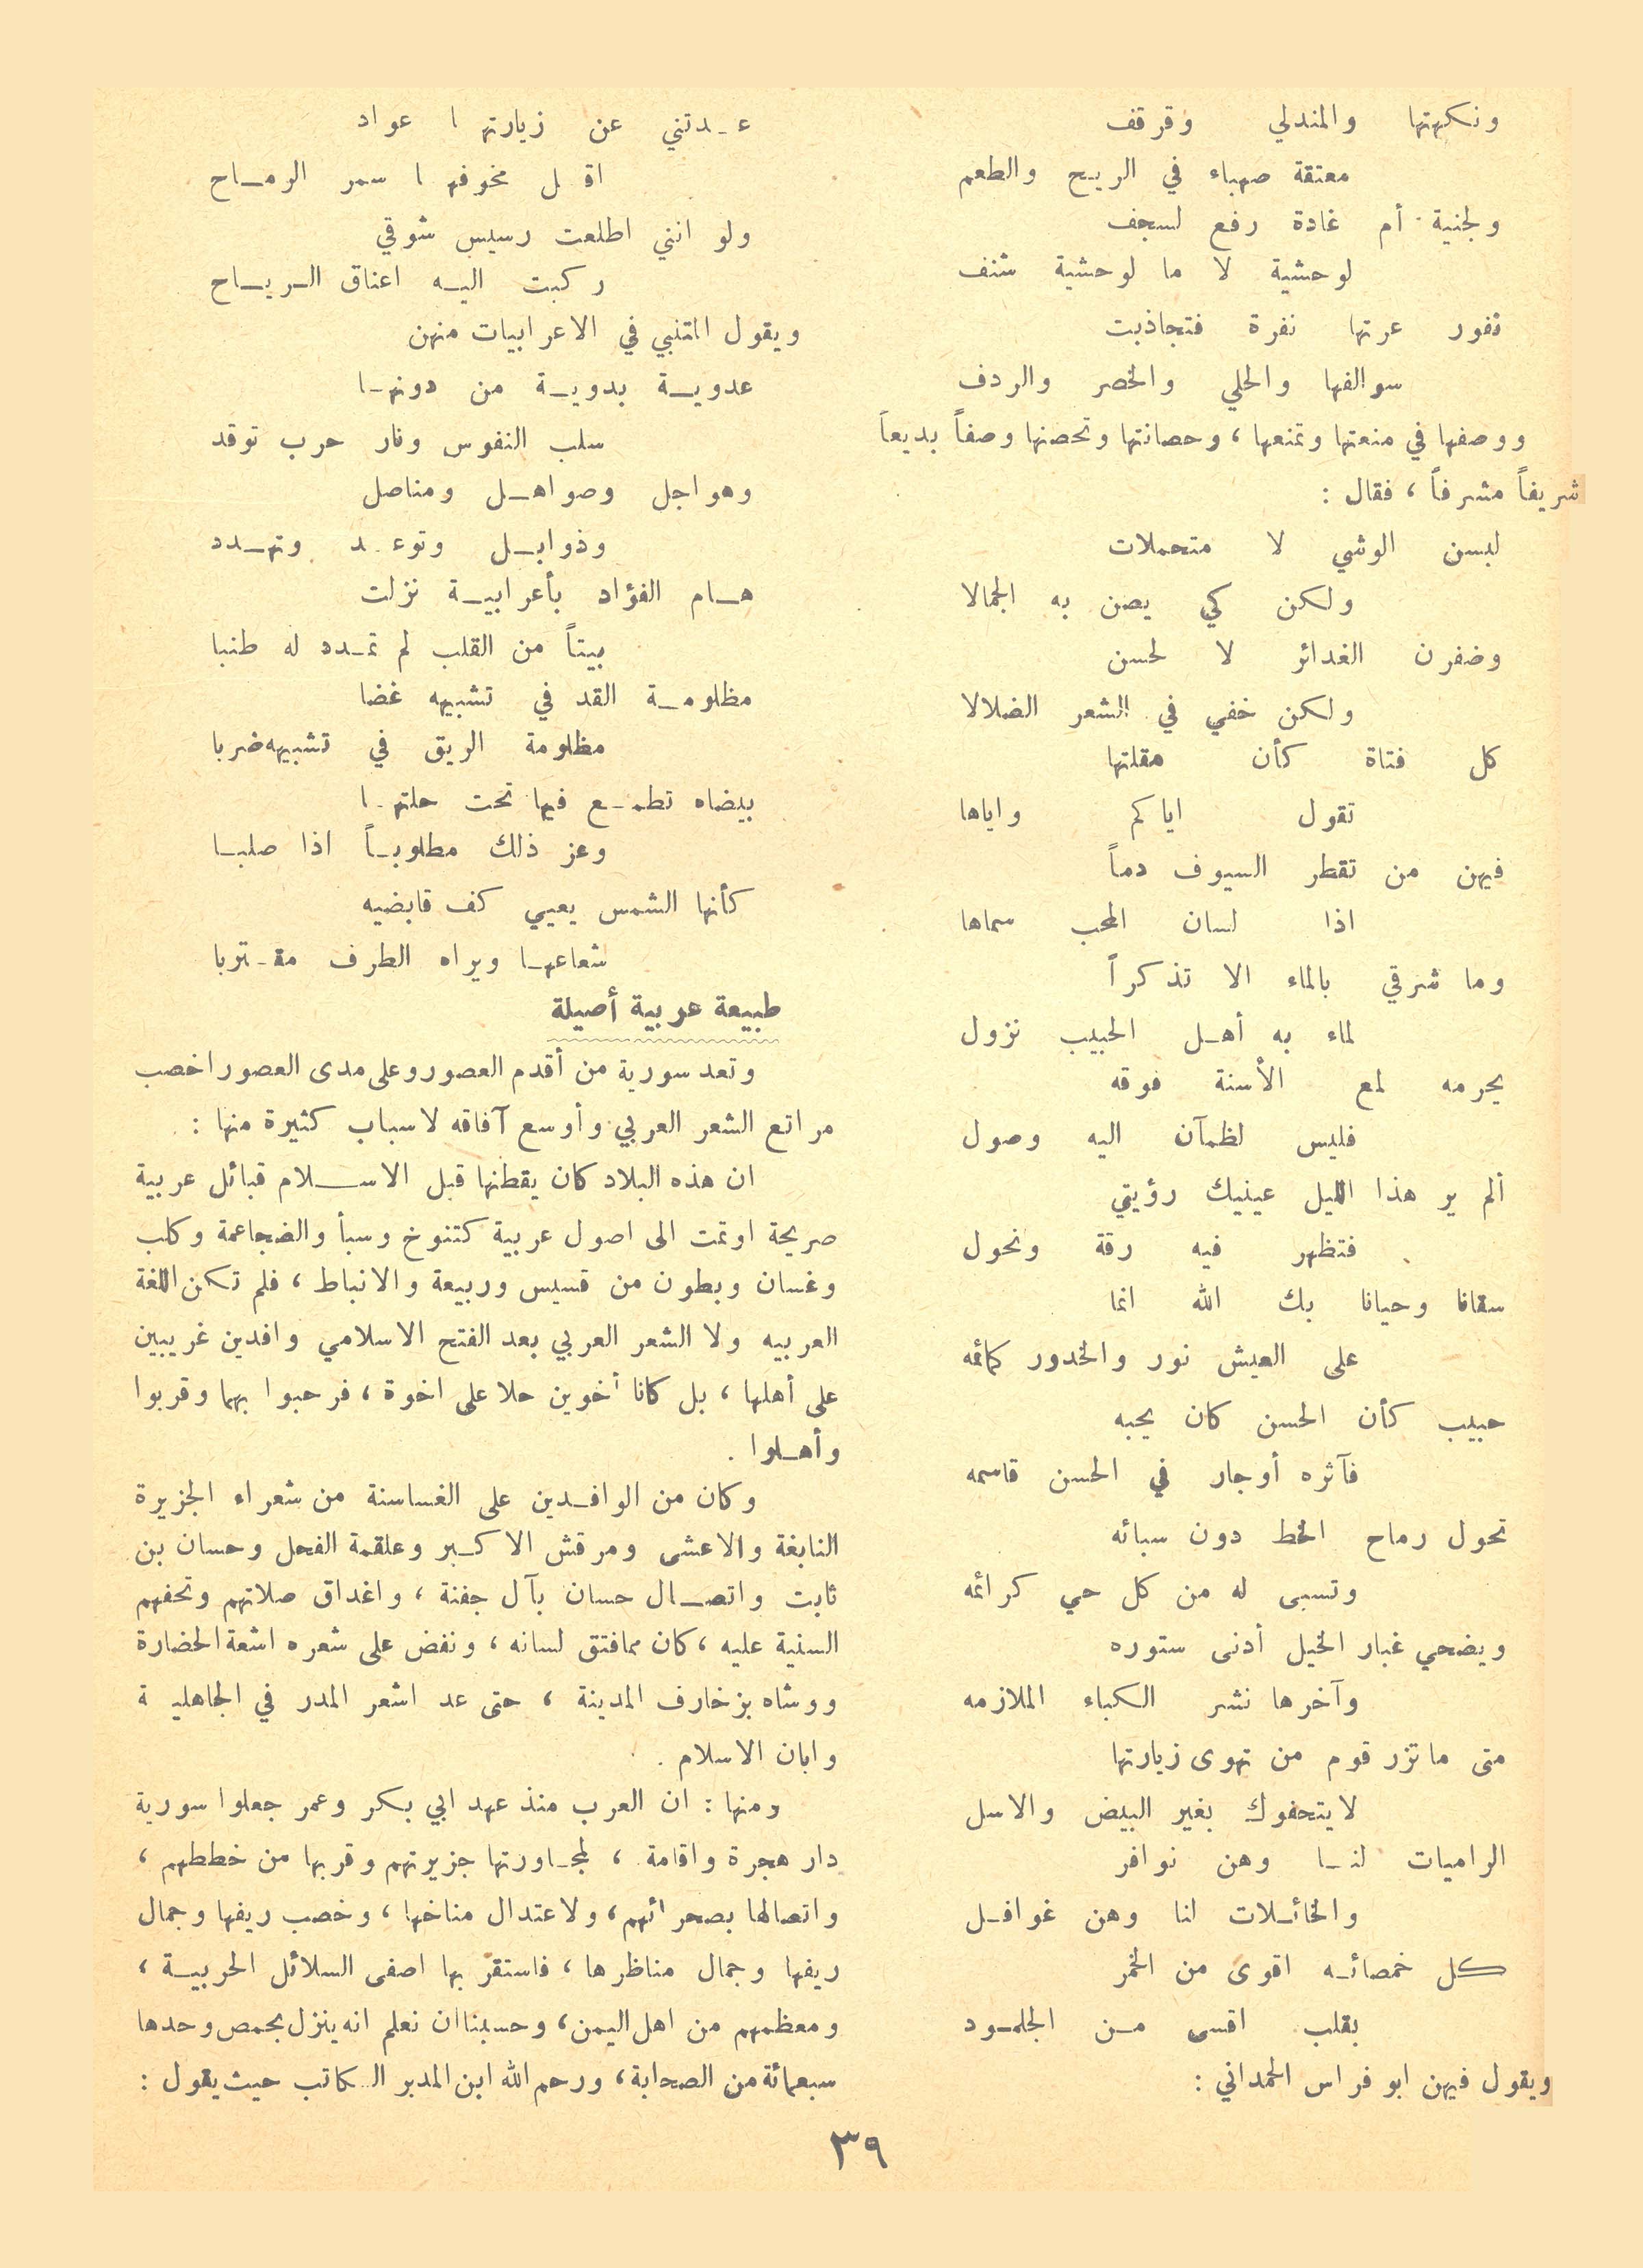 ونكهتها والمندلي وقرقف
معتقة صهباء في الريح والطعم
ولجنية أم غادة رفع لسجف
لوحشية لا ما لوحشية شنف
نفور عرتها نفرة فتجاذبت
سوالفها والحلي والخصر والردف
ووصفها في منعتها وتمنعها ، وحصانتها وتحصنها وصفاً بديعاً
شريفاً مشرفاً ، فقال :
لبسن الوشي لا متحملات
ولكن كي يصن به الجمالا
وضفرن الغدائر لا لحسن
ولكن خفي في الشعر الضلالا
كل فتاة كأن مقلتها
تقول اياكم واياها
فيهن من تقطر السيوف دماً
اذا لسان المحب سماها
وما شرقي بالماء الا تذكراً
لماء به أهل الحبيب نزول
يحرمه لمع الأسنة فوقه
فليس لظمآن اليه وصول
ألم ير هذا الليل عينيك رؤيتي
فتظهر فيه رقة ونحول
سقانا وحيانا بك الله انما
على العيش نور والخدور كمائمه
حبيب كأن الحسن كان يحبه
فآثره أوجار في الحسن قاسمه
تحول رماح الخط دون سبائه
وتسبى له من كل حي كرائمه
ويضحي غبار الخيل أدنى ستوره
وآخرها نشر الكباء الملازمه
متى ما تزر قوم من تهوى زيارتها
لا يتحفوك بغير البيض والاسل
الراميات لنا وهن نوافر
والخائلات لنا وهن غوافل
كل خمصائه اقوى من الخمر
بقلب اقسى من الجلمود
ويقول فيهن ابو فراس الحمداني :
عدتني عن زيارتها عواد
اقل مخوفها سمر الرماح
ولو انني اطلعت رسيس شوقي
ركبت اليه اعناق الرياح
ويقول المتنبي في الاعرابيات منهن
عدوية بدوية من دونها
سلب النفوس ونار حرب توقد
وهواجل وصواهل ومناصل
وذوابل وتوعد وتهدد
هام الفؤاد بأعرابية نزلت
بيتاً من القلب لم تمدد له طنبا
مظلومة القد في تشبيهه غضا
مظلومة الريق في تشبيهه ضربا
بيضاه تطمع فيها تحت حلتها
وعز ذلك مطلوباً اذا صلبا
كأنها الشمس يعيي كف قابضيه
شعاعها ويراه الطرف مقتربا
طبيعة عربية أصيلة
وتعد سورية من أقدم العصور وعلى مدى العصور اخصب
مراتع الشعر العربي وأوسع آفاقه لاسباب كثيرة منها :
ان هذه البلاد كان يقطنها قبل الاسلام قبائل عربية
صريحة اوتمت الى اصول عربية كتنوخ وسبأ والضجاعمة وكلب
وغسان وبطون من قسيس وربيعة والانباط ، فلم تكن اللغة
العربيه ولا الشعر العربي بعد الفتح الاسلامي وافدين غريبين
على أهلها ، بل كانا أخوين حلا على اخوة ، فرحبوا بهما وقربوا
وأهلوا .
وكان من الوافدين على الغساسنة من شعراء الجزيرة
النابغة والاعشى ومرقش الاكبر وعلقمة الفحل وحسان بن
ثابت واتصال حسان بآل جفنة ، واغداق صلاتهم وتحفهم
السنية عليه ، كان مما فتق لسانه ، ونفض على شعره اشعة الحضارة
ووشاه بزخارف المدينة ، حتى عد اشعر المدر في الجاهلية
وابان الاسلام .
ومنها : ان العرب منذ عهد ابي بكر وعمر جعلوا سورية
دار هجرة واقامة ، لمجاورتها جزيرتهم وقربها من خططهم ،
واتصالها بصحرائهم ، ولاعتدال مناخها ، وخصب ريفها وجمال
ريفها وجمال مناظرها ، فاستقر بها اصفى السلائل الحربية ،
ومعظمهم من اهل اليمن ، وحسبنا ان نعلم انه ينزل بحمص وحدها
سبعمائة من الصحابة ، ورحم الله ابن المدبر الكاتب حيث يقول :
٣٩